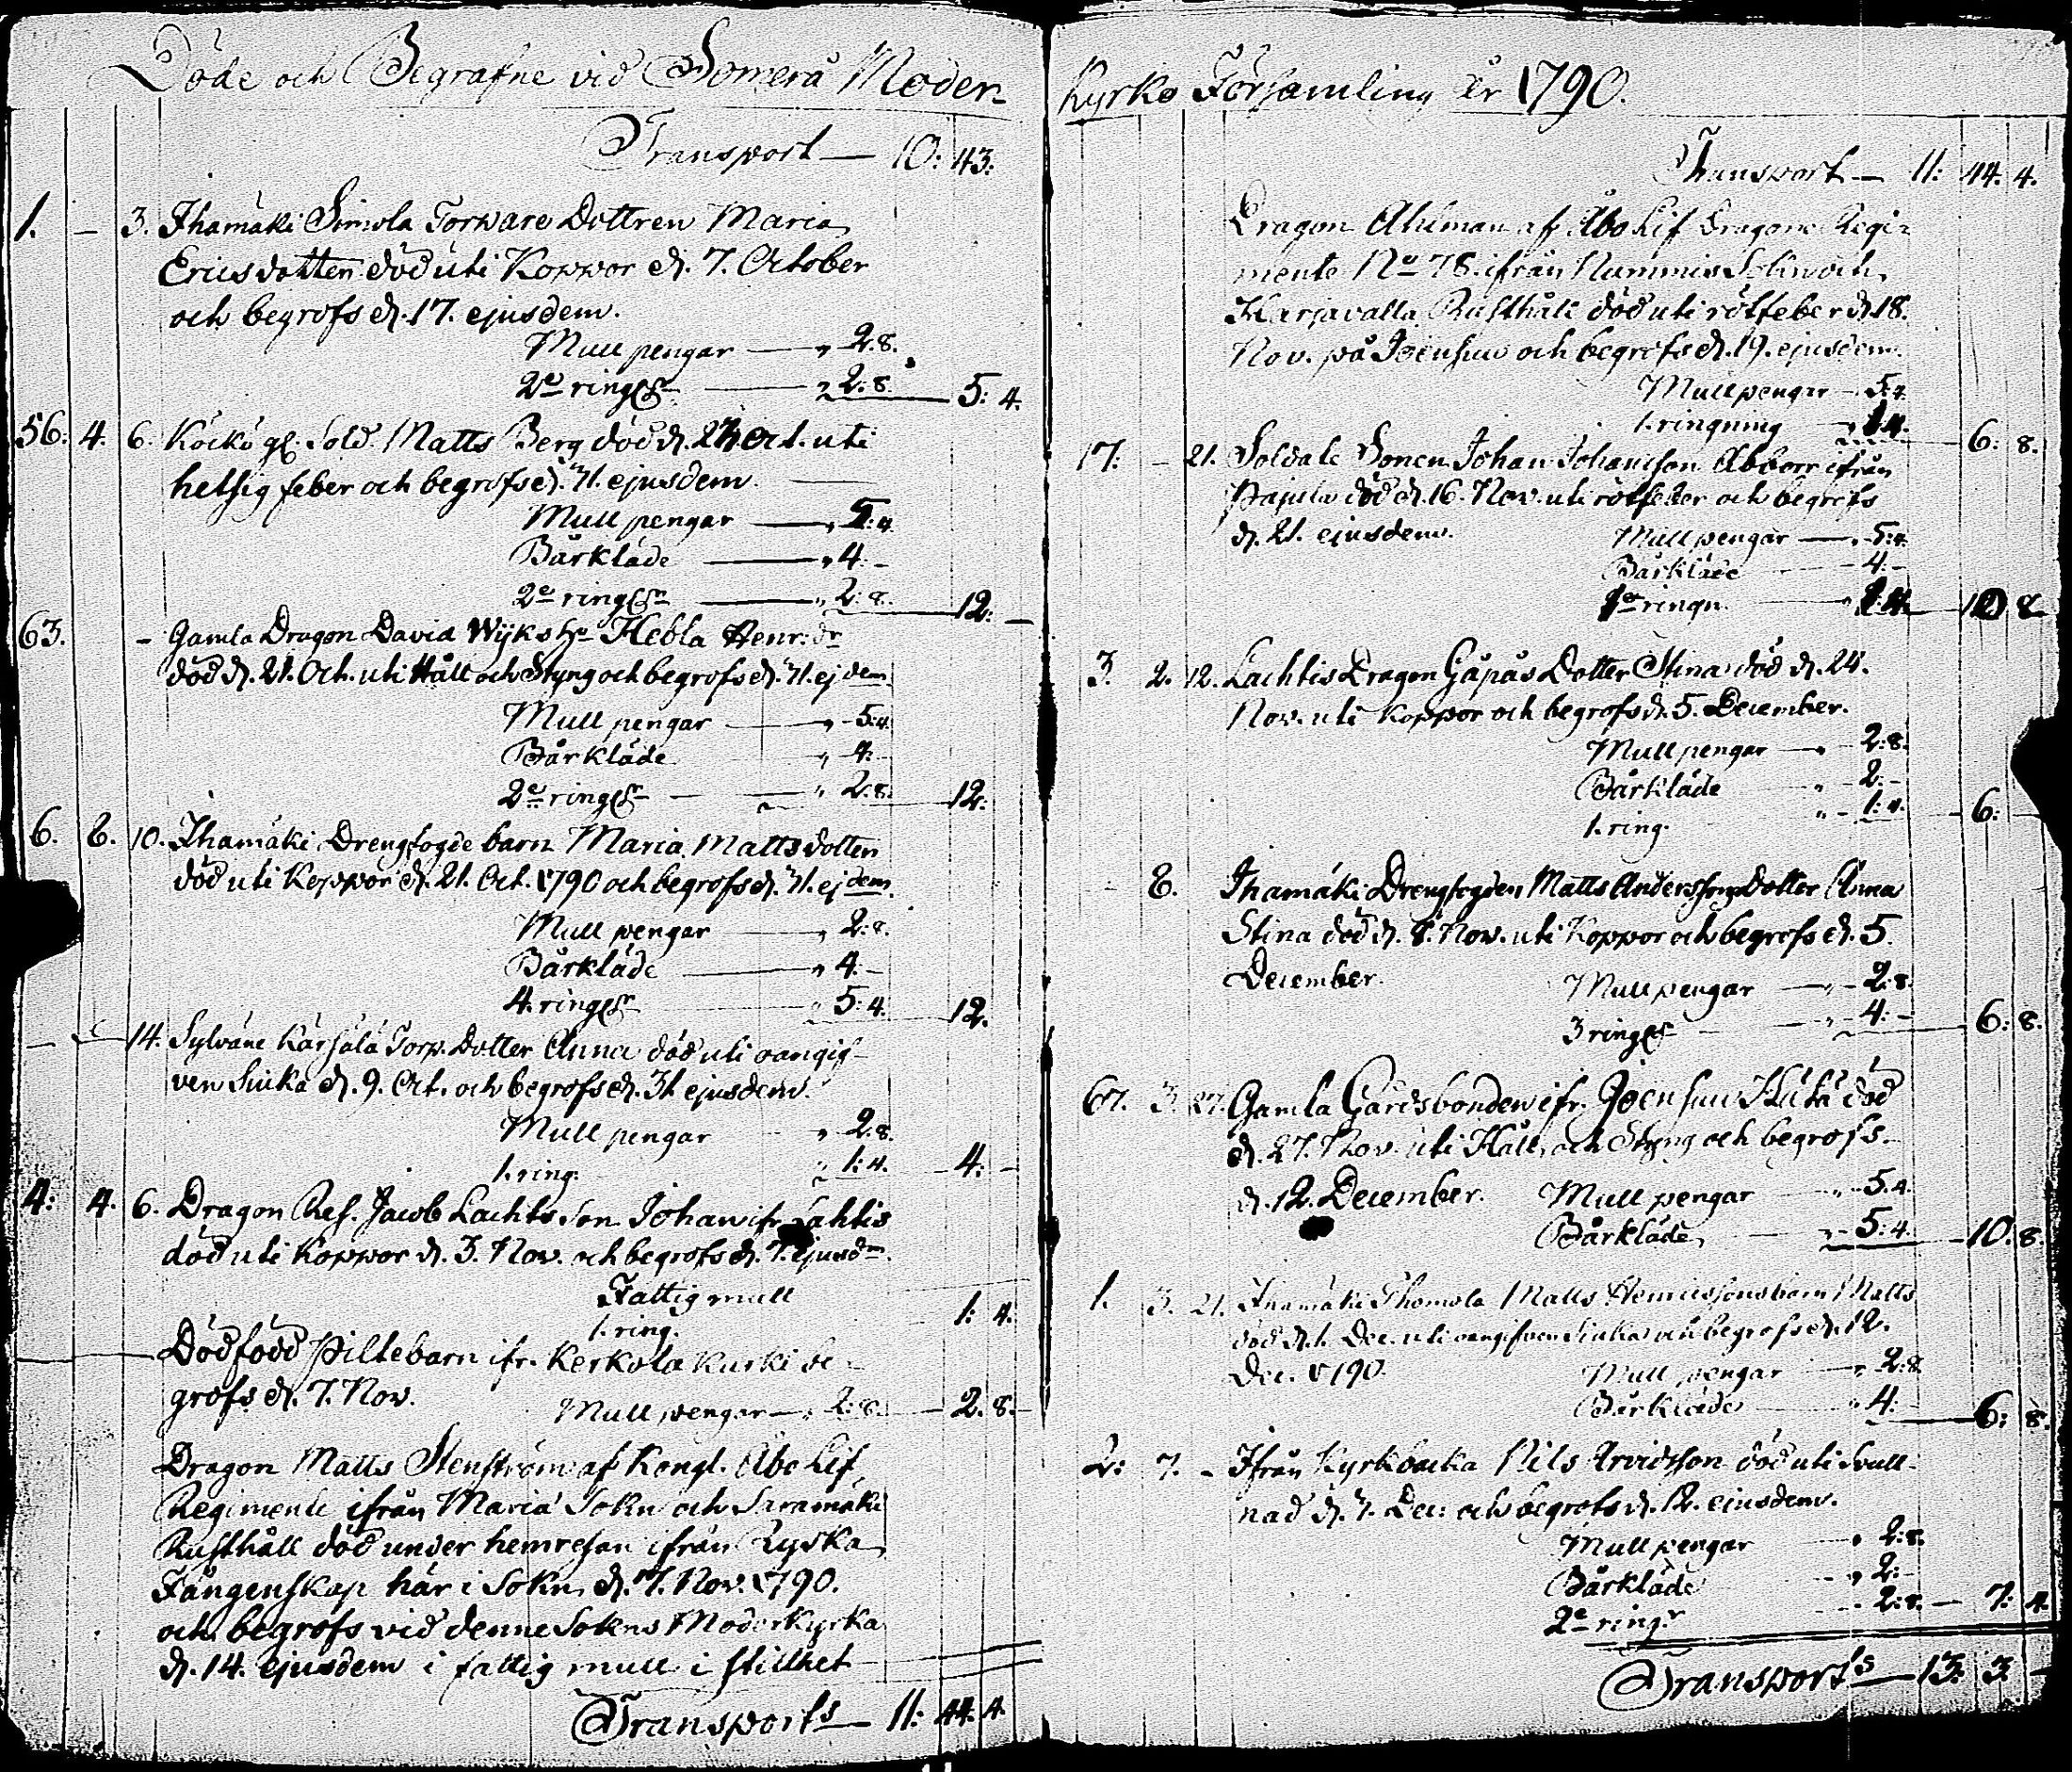 Döde och Begrafne vid Somerå Moder-
Transport — 10: 43:
1. — 3. Ihamäki Simola Torpare Dottren Maria
Ericsdotter död uti Koppor d. 7. October
och begrofs d. 17. ejusdem.
Mull pengar — „ 2.8.
2ne ring — „ 2:8. 5: 4.
56: 4. 6. Köckö gl. Sold. Matts Berg död d. 23 Oct. uti
hetsig feber och begrofs d. 31. ejusdem.
Mull pengar — „ 5:4.
Bårkläde — „ 4. -
2ne ring — „ 2:8. 12: —
63. - Gamla Dragon David Wijks h. Hebla Henr: dr
död d. 21. Oct. uti Håll och Styng och begrofs d. 31. ejdem
Mull pengar — „ 5:4.
Bårkläde „ 4:
2ne ring — „ 2.8. 12:
6. 8. 10. Ihamäki Drengfogde barn Maria Mattsdotter
död uti Koppor d. 21. Oct. 1790 och begrofs d. 31. ejdem
Mull pengar — „ 2:8.
Bårkläde — „ 4. -
4. ring „ 5:4. 12.
— 14. Sylväne Kärsälä Torp. Dotter Anna död uti oangif-
ven Siuka d. 9. Oct. och begrofs d. 31 ejusdem.
Mull pengar „ 2.8.
1. ring. „ 1:4. 4: -
4: 4. 6. Dragon Ref. Jacob Lachts Son Johan ifr. Lahtis
död uti Koppor d. 3. Nov. och begrofs d. 7. ejusdm.
Fattig mull
1. ring. 1: 4.
Dödfödd Piltebarn ifr. Kerkola Kurki be-
grofs d. 7. Nov.
Mull pengar — „ 2:8. — 2. 8.
Dragon Matts Stenström af Kongl. Åbo Lif
Regimente ifrån Maria Sokn och Saramäki
Rusthåll död under hemresan ifrån Ryska
Fångenskap här i Sokn d. 7. Nov. 1790.
och begrofs vid denne Sokns Moderkyrka
d. 14. ejusdem i fattig mull i stillhet
Transport — 11: 44. 4.
Kyrko Församling år 1790.
Transport — 11: 44. 4.
Dragon Ahlman af Åbo Lif Dragone Regi-
mente No 78. ifrån Nummis Sokn och
Karjavalla Rusthåll död uti rötfeber d. 18.
Nov. på Joensuu och begrofs d. 19. ejusdem.
Mull pengar — 5:4
1. ringning 1:4. 6: 8.
17. — 21. Soldate Sonen Johan Johansson Abborr ifrån
Pajula död d. 16. Nov. uti rötfeber och begrofs
d. 21. ejusdem.
Mull pengar — „ 5:4.
Bårkläde 4: -
ringn. 10 8
3. 2. 12. Lachtis Dragon Gåpås Dotter Stina död d. 24.
Nov. uti Koppor och begrofs d. 5. December.
Mull pengar — 2:8.
Bårkläde „ 2: -
1. ring. „ 1:4. 6: —
- 8. Ihamäki Drengfogden Matts Anderssons Dotter Anna
Stina död d. 8. Nov. uti Koppor och begrofs d. 5.
December.
Mull pengar — „ 2:8.
3 ring „ 4: - 6: 8.
67. 3. 27. Gamla Gårdsbonden ifr. Joensuu död
d. 27. Nov. uti Håll och Styng och begrofs
d. 12. December.
Mull pengar „ 5.4.
Bårkläde „ 5:4. 10. 8.
1. 3. 21. Ihamäki Thomola Matts Henricssons barn Matts
död d. 1. Dec. uti oangifven Siuka och begrofs d. 12.
Dec. 1790.
Mull pengar — „ 2:8.
Bårkläde „ 4: 6: 8.
2: 7. - Ifrån Kyrkbacka Nils Arvidsson död uti Svull-
nad d. 7. Dec: och begrofs d. 12. ejusdem.
Mull pengar „ 2:8.
Bårkläde „ 2:
2ne ringr „ 2:8. — 7: 4.
Transport — 13. 3 —